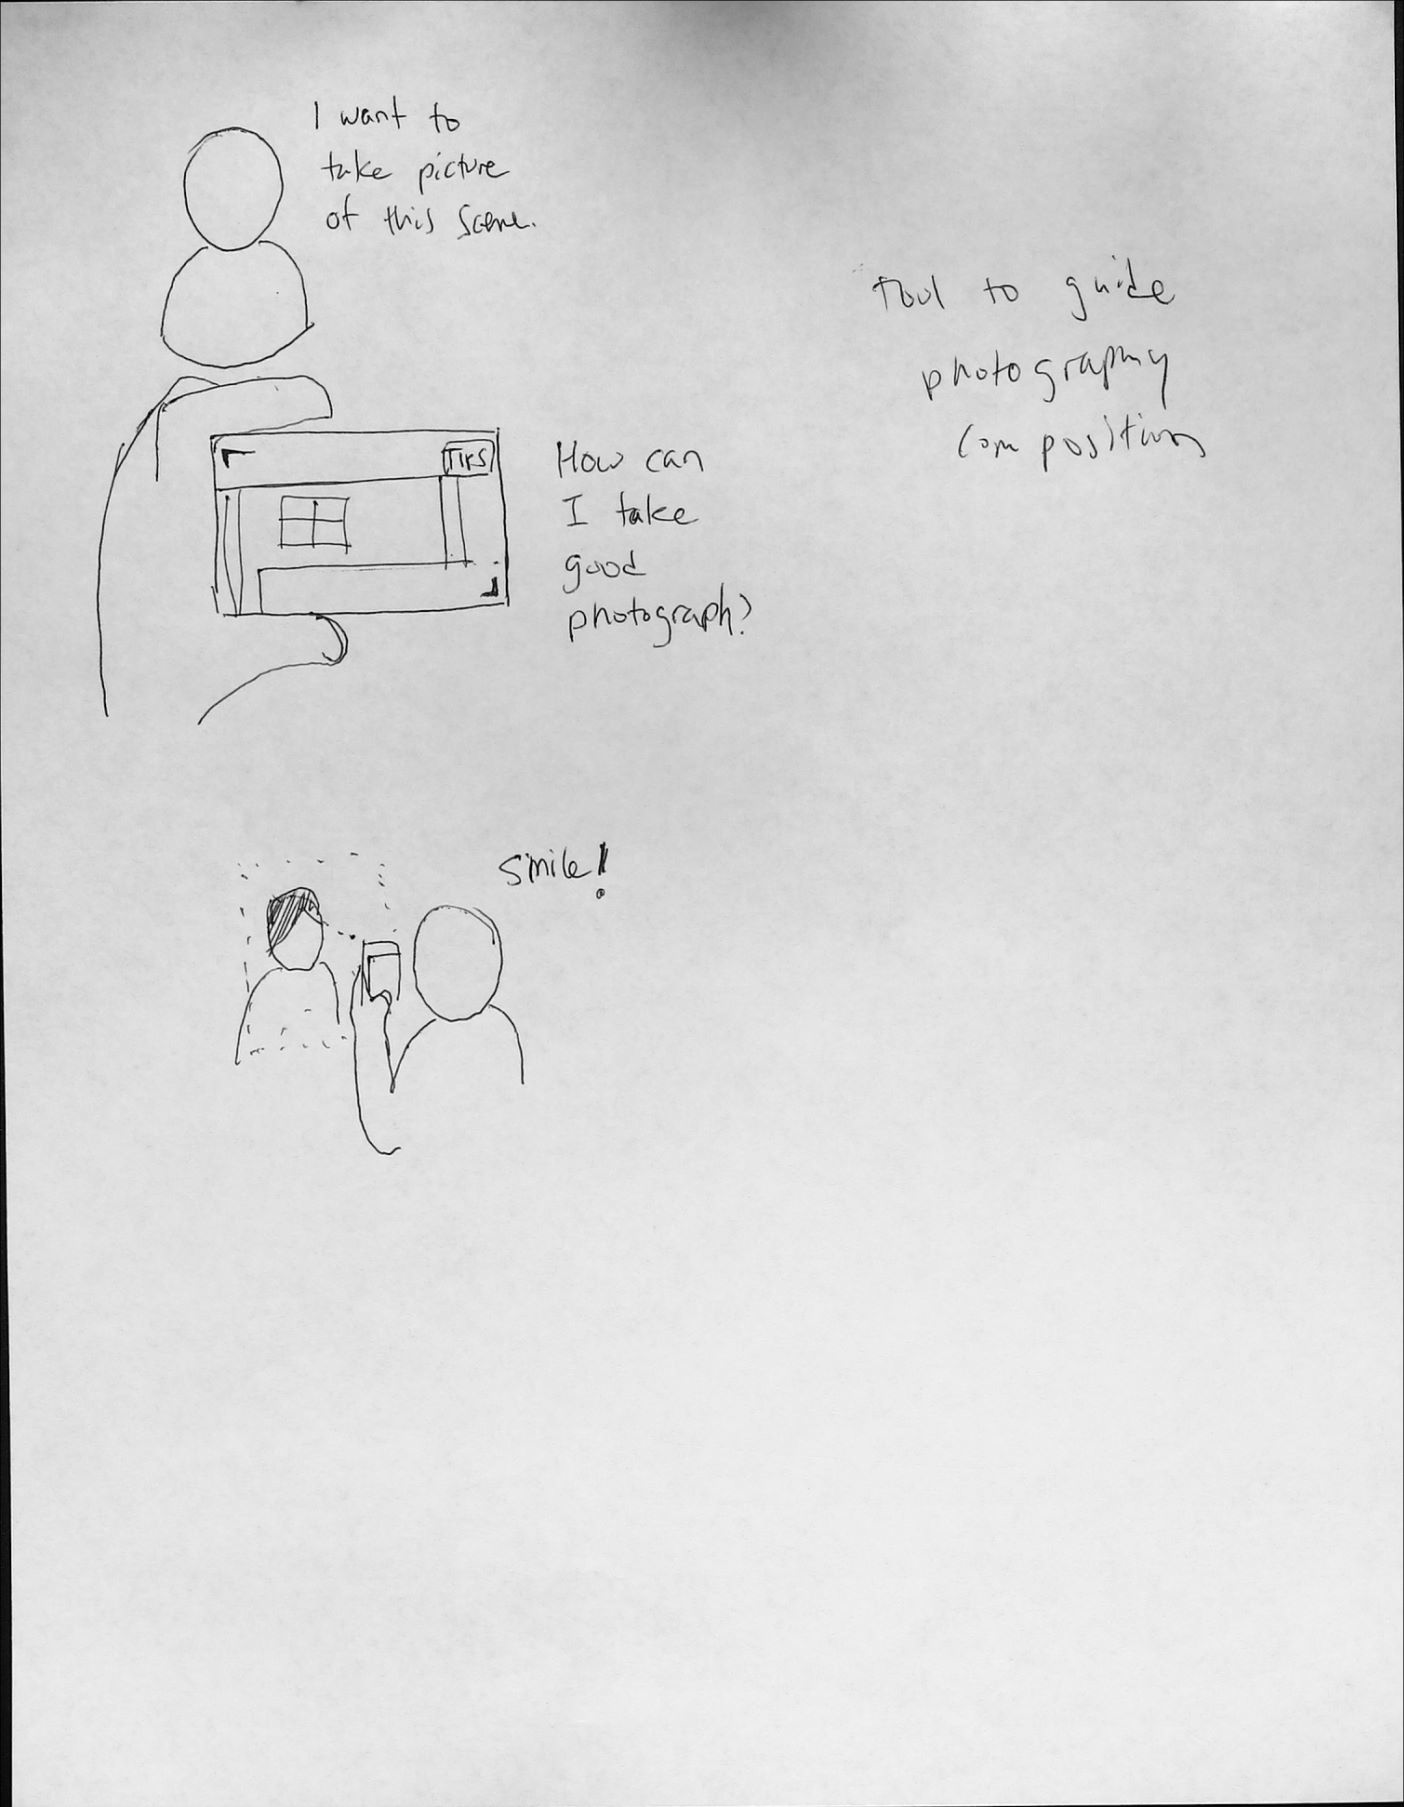 I want to
take picture
of this scene.
tool to guide
photography
composition
TIPS
How can
I take
good
photograph?
Smile!